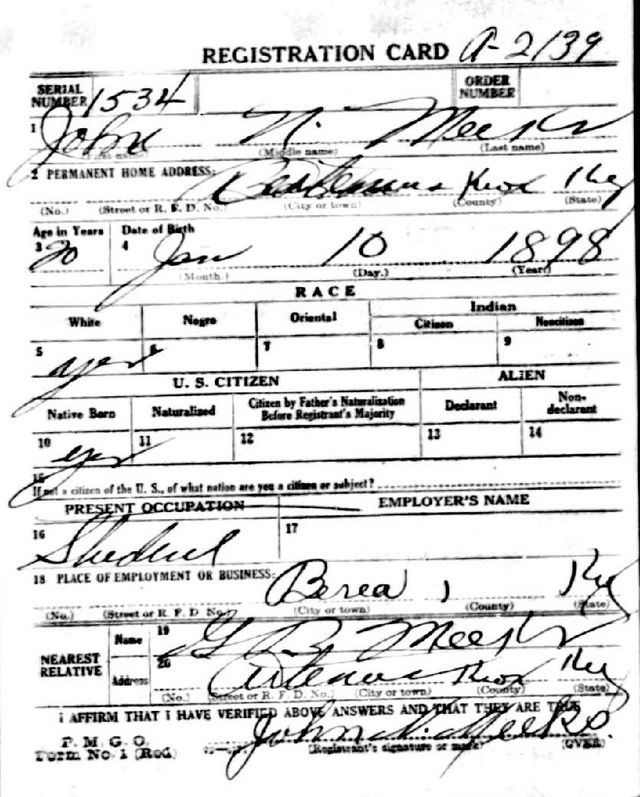 REGISTRATION CARD A-2139
SERIAL NUMBER 1534 ORDER NUMBER
1 John N. Meeks
(First name) (Middle name) (Last name)
2 PERMANENT HOME ADDRESS: Artemus Knox Ky
(No.) (Street or R. F. D. No.) (City or town) (County) (State)
Age in Years Date of Birth
3 20 4 Jan 10 1898
(Month.) (Day.) (Year)
RACE
White Negro Oriental Indian
Citizen Noncitizen
5 yes 6 7 8 9
U. S. CITIZEN ALIEN
Native Born Naturalized Citizen by Father's Naturalization Before Registrant's Majority Declarant Non-declarant
10 yes 11 12 13 14
15
If not a citizen of the U. S., of what nation are you a citizen or subject?
PRESENT OCCUPATION EMPLOYER'S NAME
16 Student 17
18 PLACE OF EMPLOYMENT OR BUSINESS: Berea, Ky
(No.) (Street or R. F. D. No.) (City or town) (County) (State)
NEAREST RELATIVE Name 19 G B Meeks
Address 20 Artemus Knox Ky
(No.) (Street or R. F. D. No.) (City or town) (County) (State)
I AFFIRM THAT I HAVE VERIFIED ABOVE ANSWERS AND THAT THEY ARE TRUE
P. M. G. O.
Form No. 1 (Red) John N. Meeks.
(Registrant's signature or mark) (OVER)